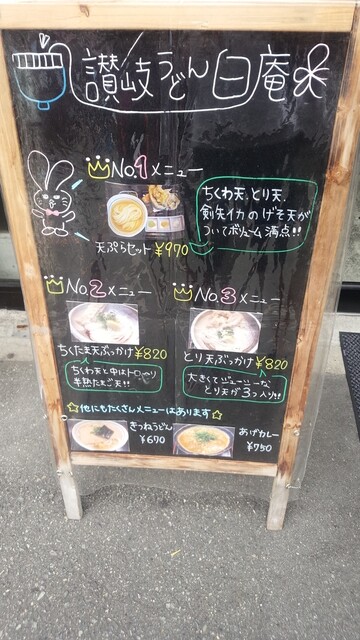 讃岐うどん 白庵
No.1メニュー
ちくわ天、とり天、
剣先イカのげそ天が
ついてボリューム満点!!
天ぷらセット ¥970
No.2メニュー
No.3メニュー
ちくたま天ぶっかけ¥820
とり天ぶっかけ¥820
ちくわ天と中はトロ〜リ
半熟たまご天!!
大きくてジューシーな
とり天が3つ入り!!
☆他にもたくさんメニューはあります☆
きつねうどん
¥670
あげカレー
¥750